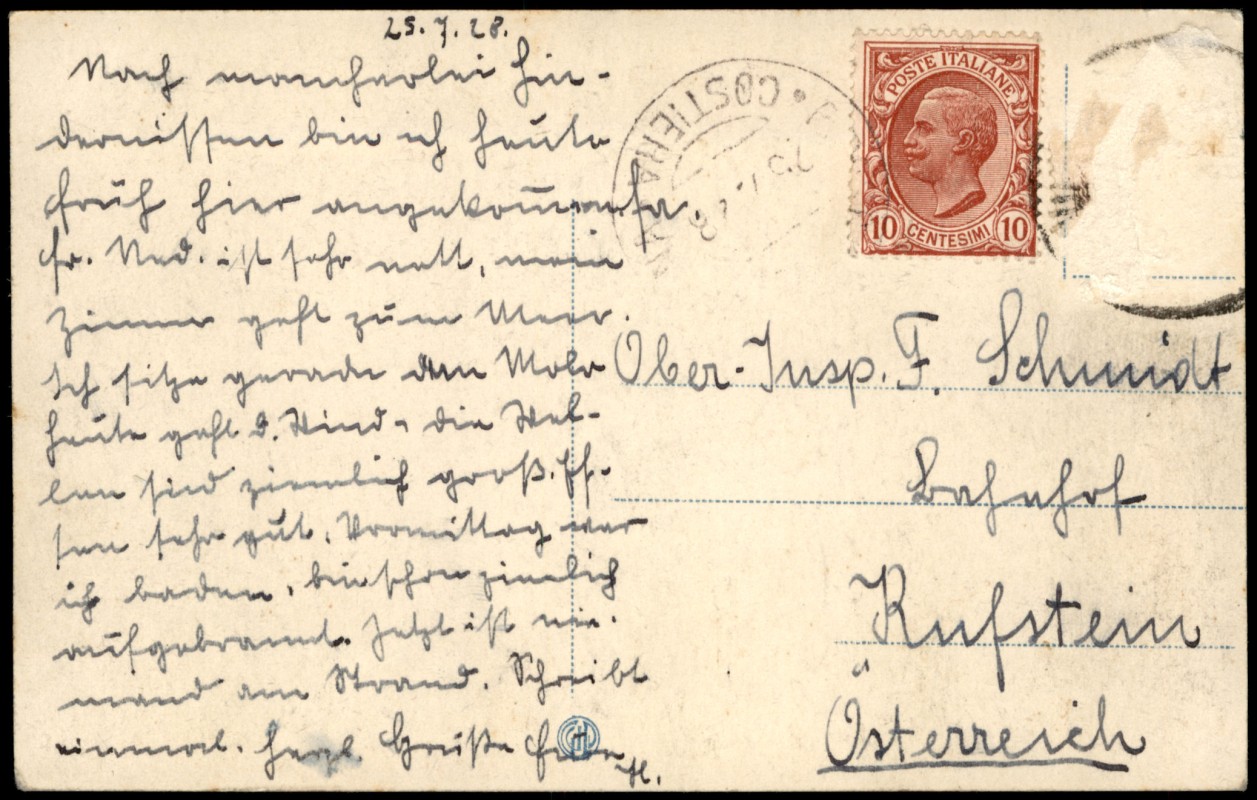 25.7.28.
Nach mancherlei Hin-
dernissen bin ich heute
früh hier angekommen.
Fr. Ned. ist sehr nett, mein
Zimmer geht zum Meer.
Ich sitze gerade am Molo
heute geht d. Wind, die Wel-
len sind ziemlich groß. Es-
sen sehr gut. Vormittag war
ich baden, bin schon ziemlich
aufgebrannt. Jetzt ist nie-
mand am Strand. Schreibt
einmal. Herzl. Grüße
COSTIERA
POSTE ITALIANE
10 CENTESIMI 10
Ober-Insp. F. Schmidt
Bahnhof
Kufstein
Österreich